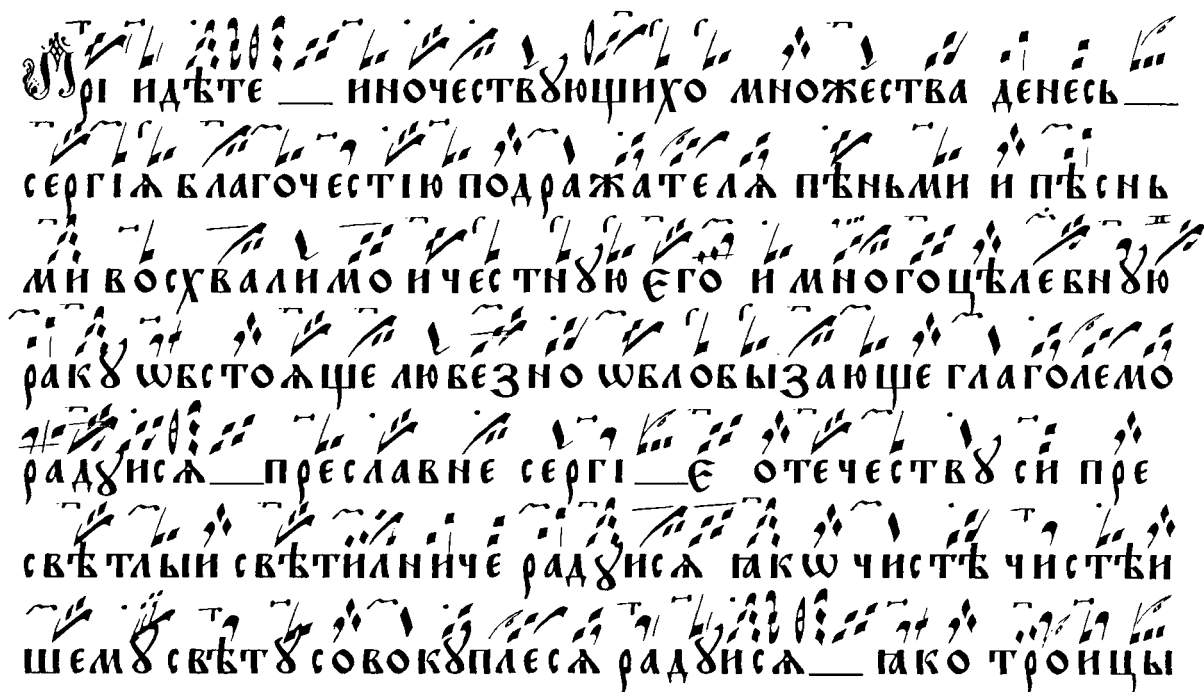 Прі идѣте иночествꙋющихо множества денесь
сергїѧ благочестїю подражателѧ пѣньми и пѣснь
ми восхвалимо и честнꙋю єго и многоцѣлебнꙋю
ракꙋ ѡбстоѧще любезно ѡблобызающе глаголемо
радꙋисѧ преславне сергі є отечествꙋ си пре
свѣтлыи свѣтилниче радꙋисѧ ꙗкѡ чистѣ чистѣи
шемꙋ свѣтꙋ совокꙋплесѧ радꙋисѧ ꙗко троицы